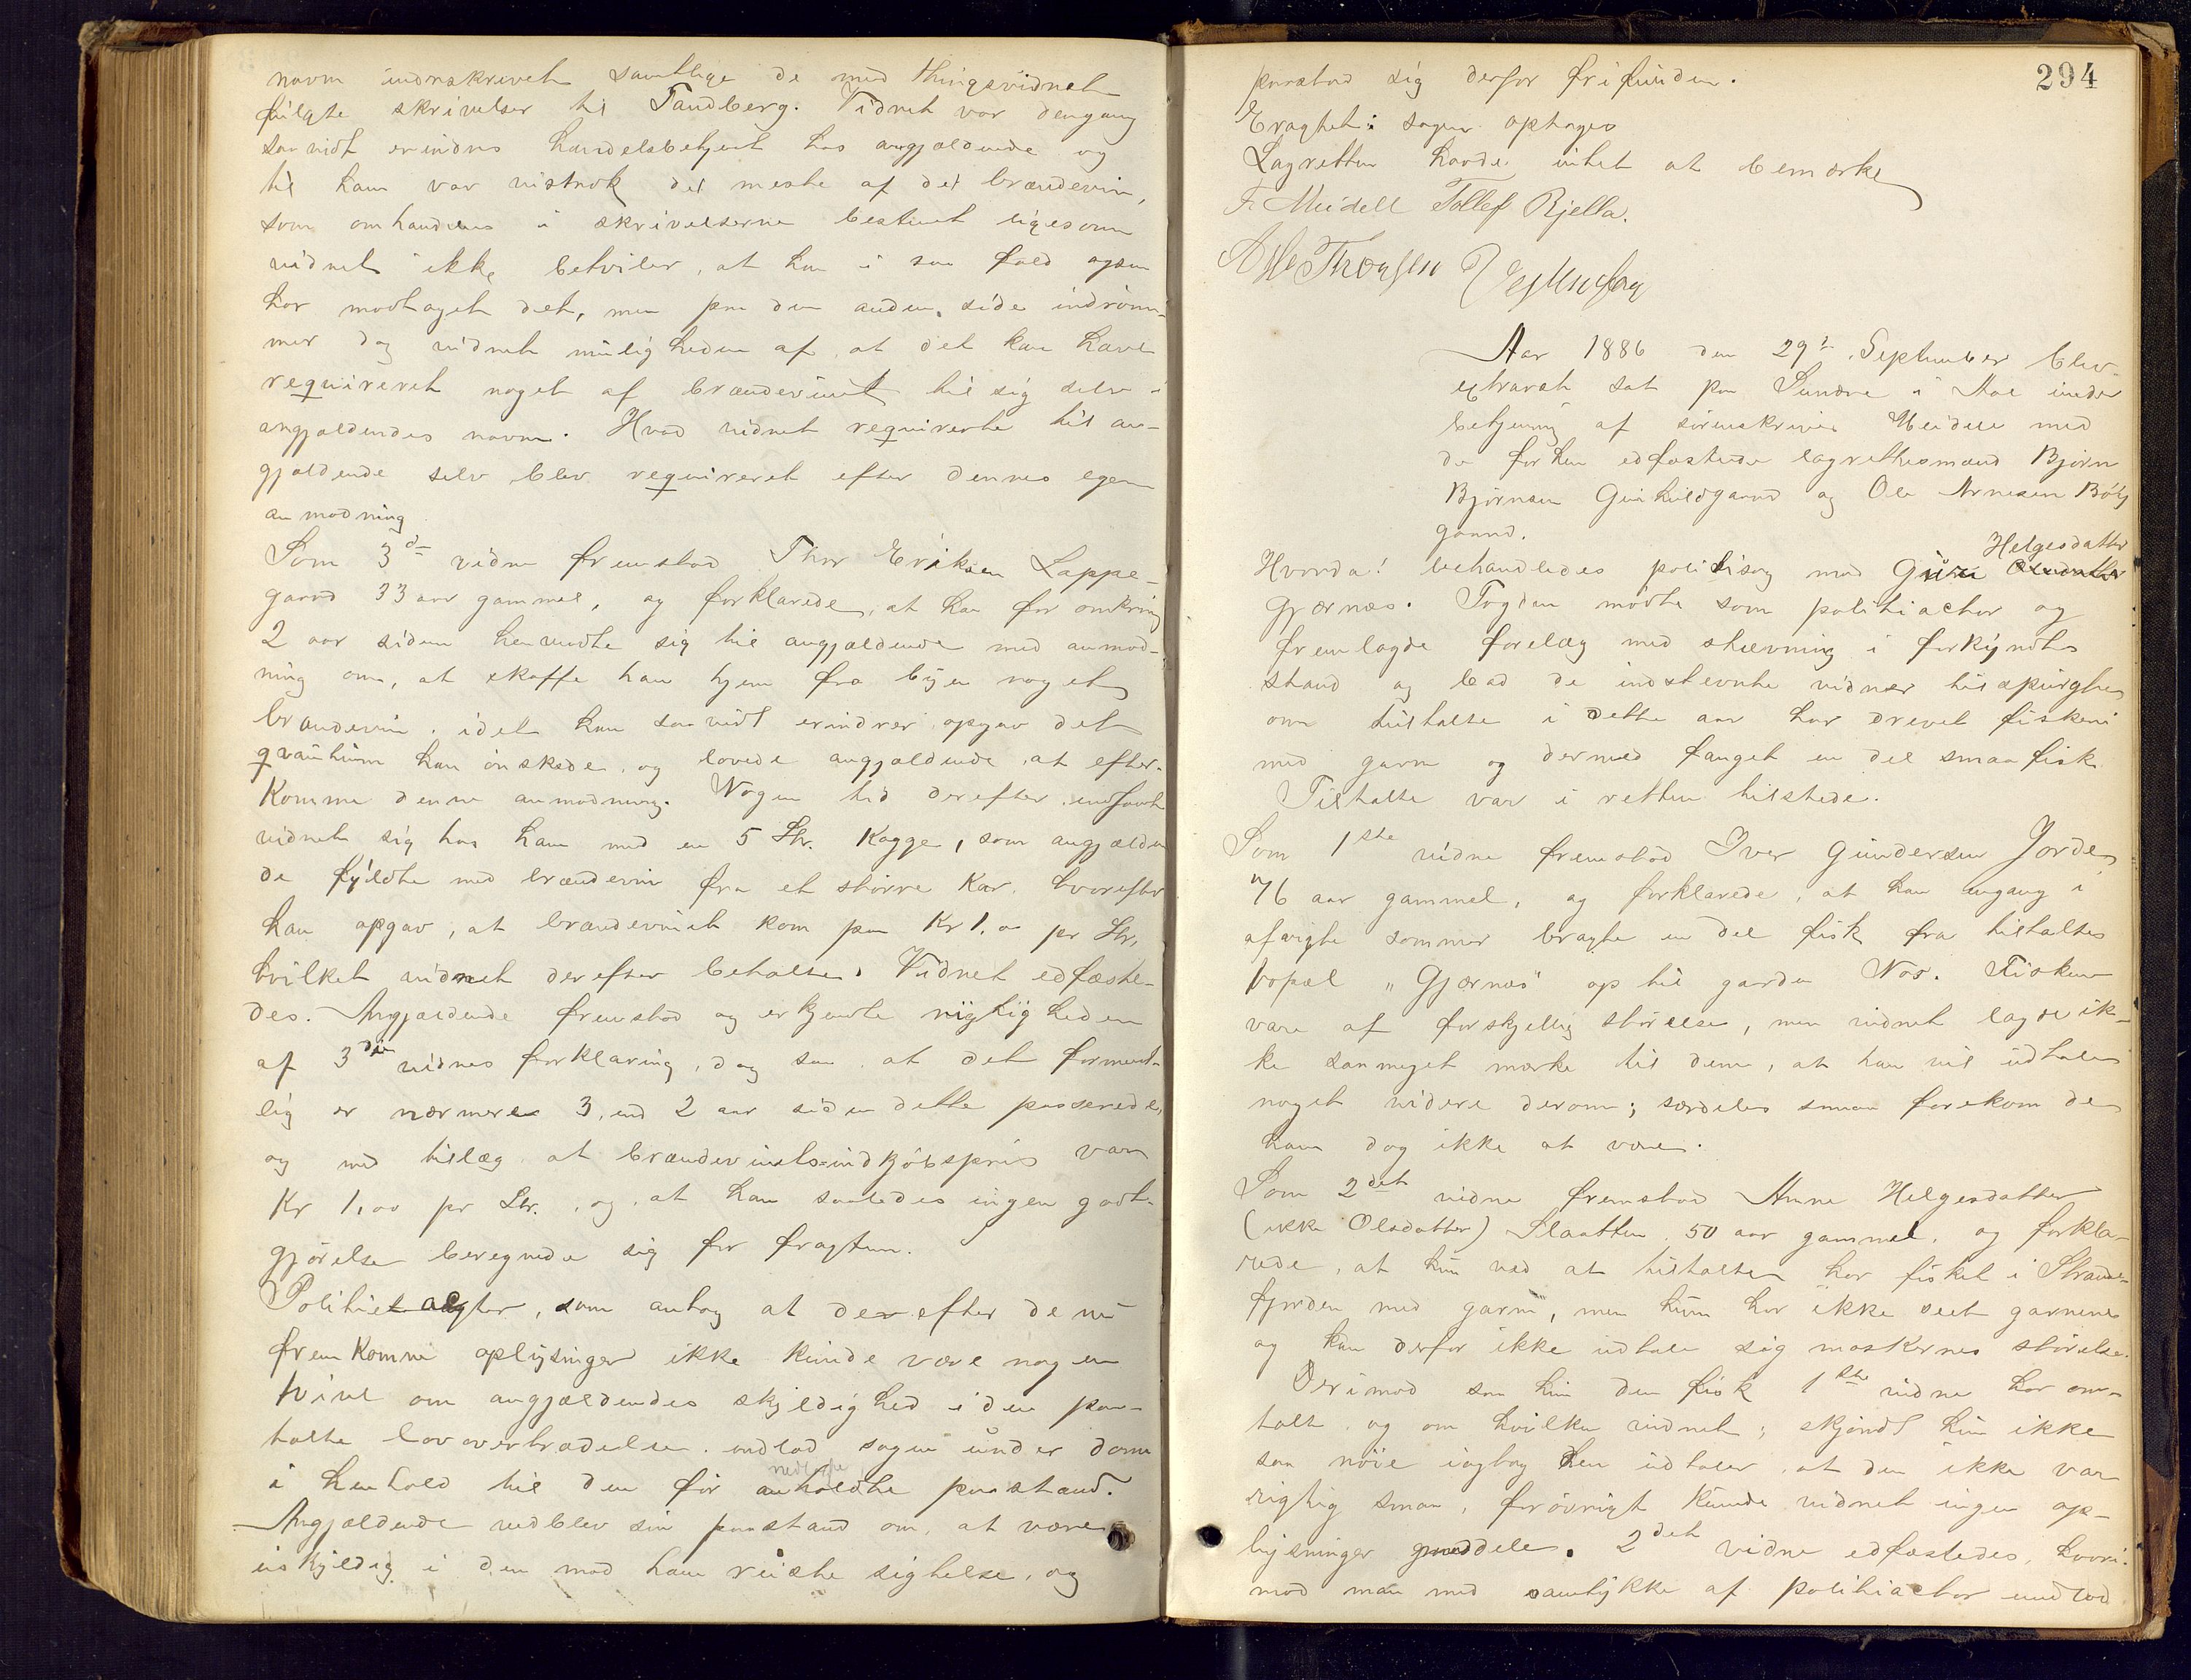 navn underskrevet samtlige de med thingsvidnet
fulgte skrivelser til Tandberg. Vidnet var dengang
saavidt erindres handelsbetjent hos angjældende og
til ham var vistnok det meste af det brændevin,
som omhandles i skrivelserne bestemt ligesom
vidnet ikke betviler, at han i saa fald ogsaa
har modtaget det, men paa den anden side indrøm-
mer dog vidnet muligheden af at det kan have
requireret noget af brændevinet til sig selv i
angjældendes navn. Hvad vidnet requirerte til an-
gjældende selv blev requireret efter dennes egen
anmodning
Som 3die vidne fremstod Thor Eriksen Lappe-
gaard 33 aar gammel, og forklarede, at han for omkring
2 aar siden henvendte sig til angjældende med anmod-
ning om, at skaffe ham hjem fra byen noget
brændevin, idet han saavidt erindrer opgav det
qvantum han ønskede, og lovede angjældende at efter-
komme denne anmodning. Nogen tid derefter indfandt
vidnet sig hos ham med en 5 Ltr. Kagge, som angjælden
de fyldte med brændevin fra et større Kar, hvorefter
han opgav, at brændevinet kom paa Kr 1.00 pr Ltr,
hvilket vidnet derefter betalte. Vidnet edfæste-
des. Angjældende fremstod og erkjendte rigtigheden
af 3die vidnes forklaring, dog saa at det forment-
lig er nærmere 3, end 2 aar siden dette passerede,
og med tillæg at brændevinets indkjøbspris var
Kr 1,00 pr Ltr., og at han saaledes ingen godt-
gjørelse beregnede sig for fragten.
Politiactor, som antog at der efter de nu
fremkomne oplysninger ikke kunde være nogen
tvivl om angjældendes skyldighed i den paa-
talte lovovertrædelse, indlod sagen under dom
nedlagte
i henhold til den før anholdte paastand.
Angjældende vedblev sin paastand om, at være
uskyldig i den mod ham reiste sigtelse, og
294
paastod sig derfor frifunden.
Eragtet: sagen optages
Lagretten havde intet at bemærke
F. Meidell Tollef Rjella.
Aar 1886 den 29de September blev
extraret sat paa Sundre i Aal under
betjening af sorenskriver Meidell med
de forhen edfæstede lagrettesmænd Bjørn
Bjørnsen Gunhildgaard og Ole Arnesen Bøly
gaard.
Helgesdatter
Hvorda! behandledes politisag mod Guri Olsdatter
Gjærnæs. Fogden mødte som politiactor og
fremlagde forelæg med stævning i forkyndt
stand og bad de indstevnte vidner tilspurgte
om tiltalte i dette aar har drevet fiskeri
med garn og dermed fanget en del smaa fisk.
Tiltalte var i retten tilstede.
Som 1ste vidne fremstod Iver Gundersen Jorde
76 aar gammel, og forklarede, at han engang i
afvigte sommer bragte en del fisk fra tiltaltes
bopæl "Gjærnæs" op til garden Nos. Fisken
vare af forskjellig størelse, men vidnet lagde ik-
ke saameget mærke til dem, at han vil udtale
noget videre derom; særdeles smaa forekom de
ham dog ikke at være.
Som 2det vidne fremstod Anne Helgesdatter
(ikke Olsdatter) Slaatten 50 aar gammel, og forkla-
rede, at hun ved at tiltalte har fisket i Strande-
fjorden med garn, men hun har ikke seet garnene
og kan derfor ikke udtale sig maskernes størelse.
Derimod saa hun den fisk 1ste vidne har om-
talt, og om hvilken vidnet, skjøndt hun ikke
saa nøie iagtog den udtaler, at den ikke var
rigtig smaa, forøvrigt kunde vidnet ingen op-
lysninger meddele. 2det vidne edfæstedes, hvori-
mod man med samtykke af politiactor undlod